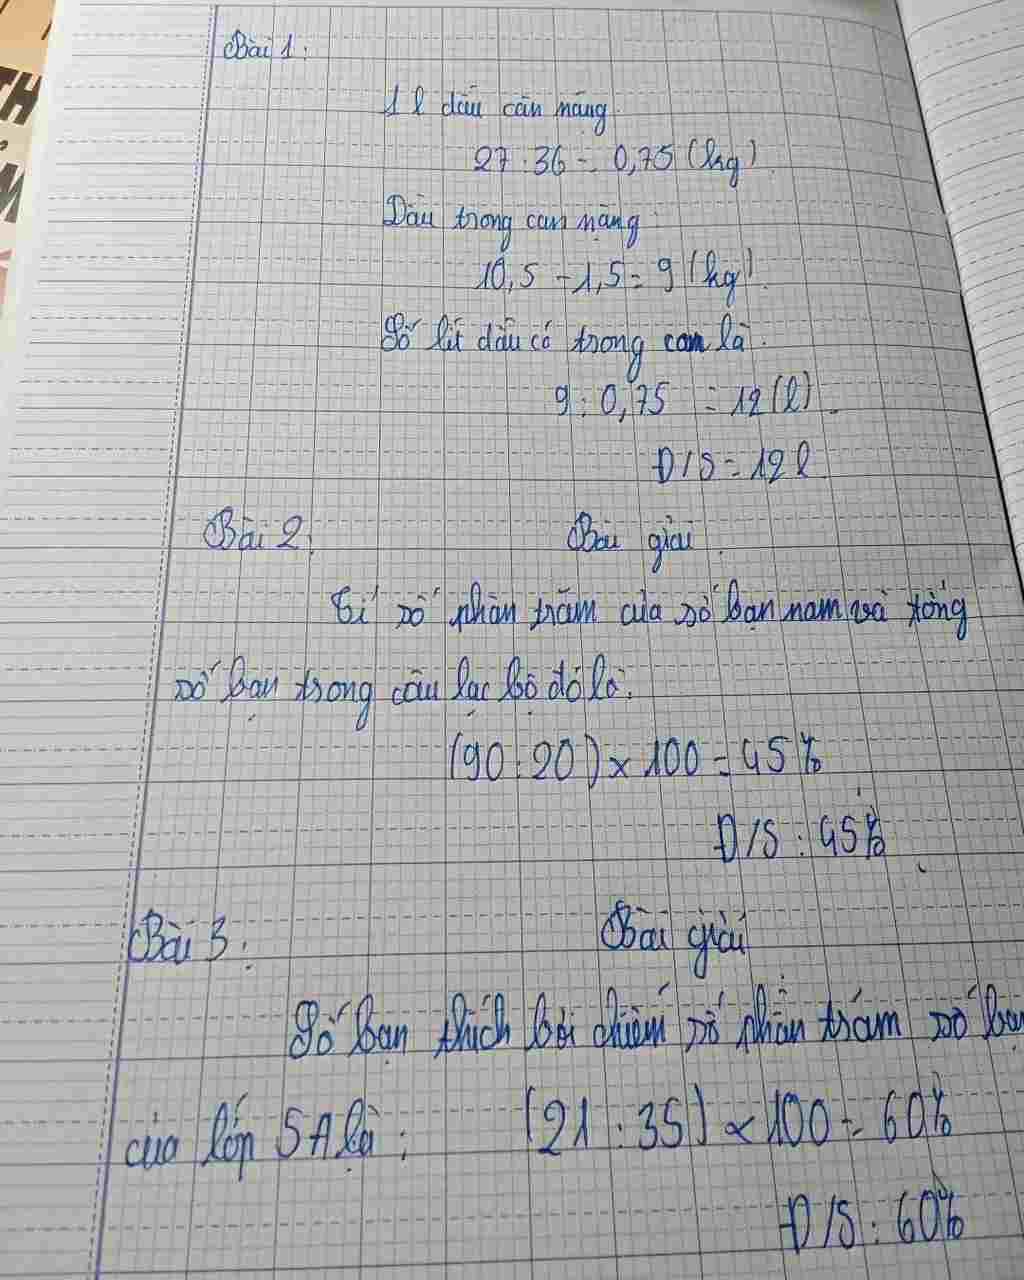 TH
M
Bài 1:
1 l dầu cân nặng.
27 : 36 = 0,75 (kg)
Dầu trong can nặng:
10,5 - 1,5 = 9 (kg)
Số lít dầu có trong can là:
9 : 0,75 = 12 (l)
Đ/S = 12 l
Bài 2: Bài giải
Tỉ số phần trăm của số bạn nam và tổng
số bạn trong câu lạc bộ đó là:
(90 : 20) x 100 = 45%
Đ/S : 45%
Bài 3: Bài giải
Số bạn thích bơi chiếm số phần trăm số bạn
của lớp 5A là: (21 : 35) x 100 = 60%
Đ/S : 60%